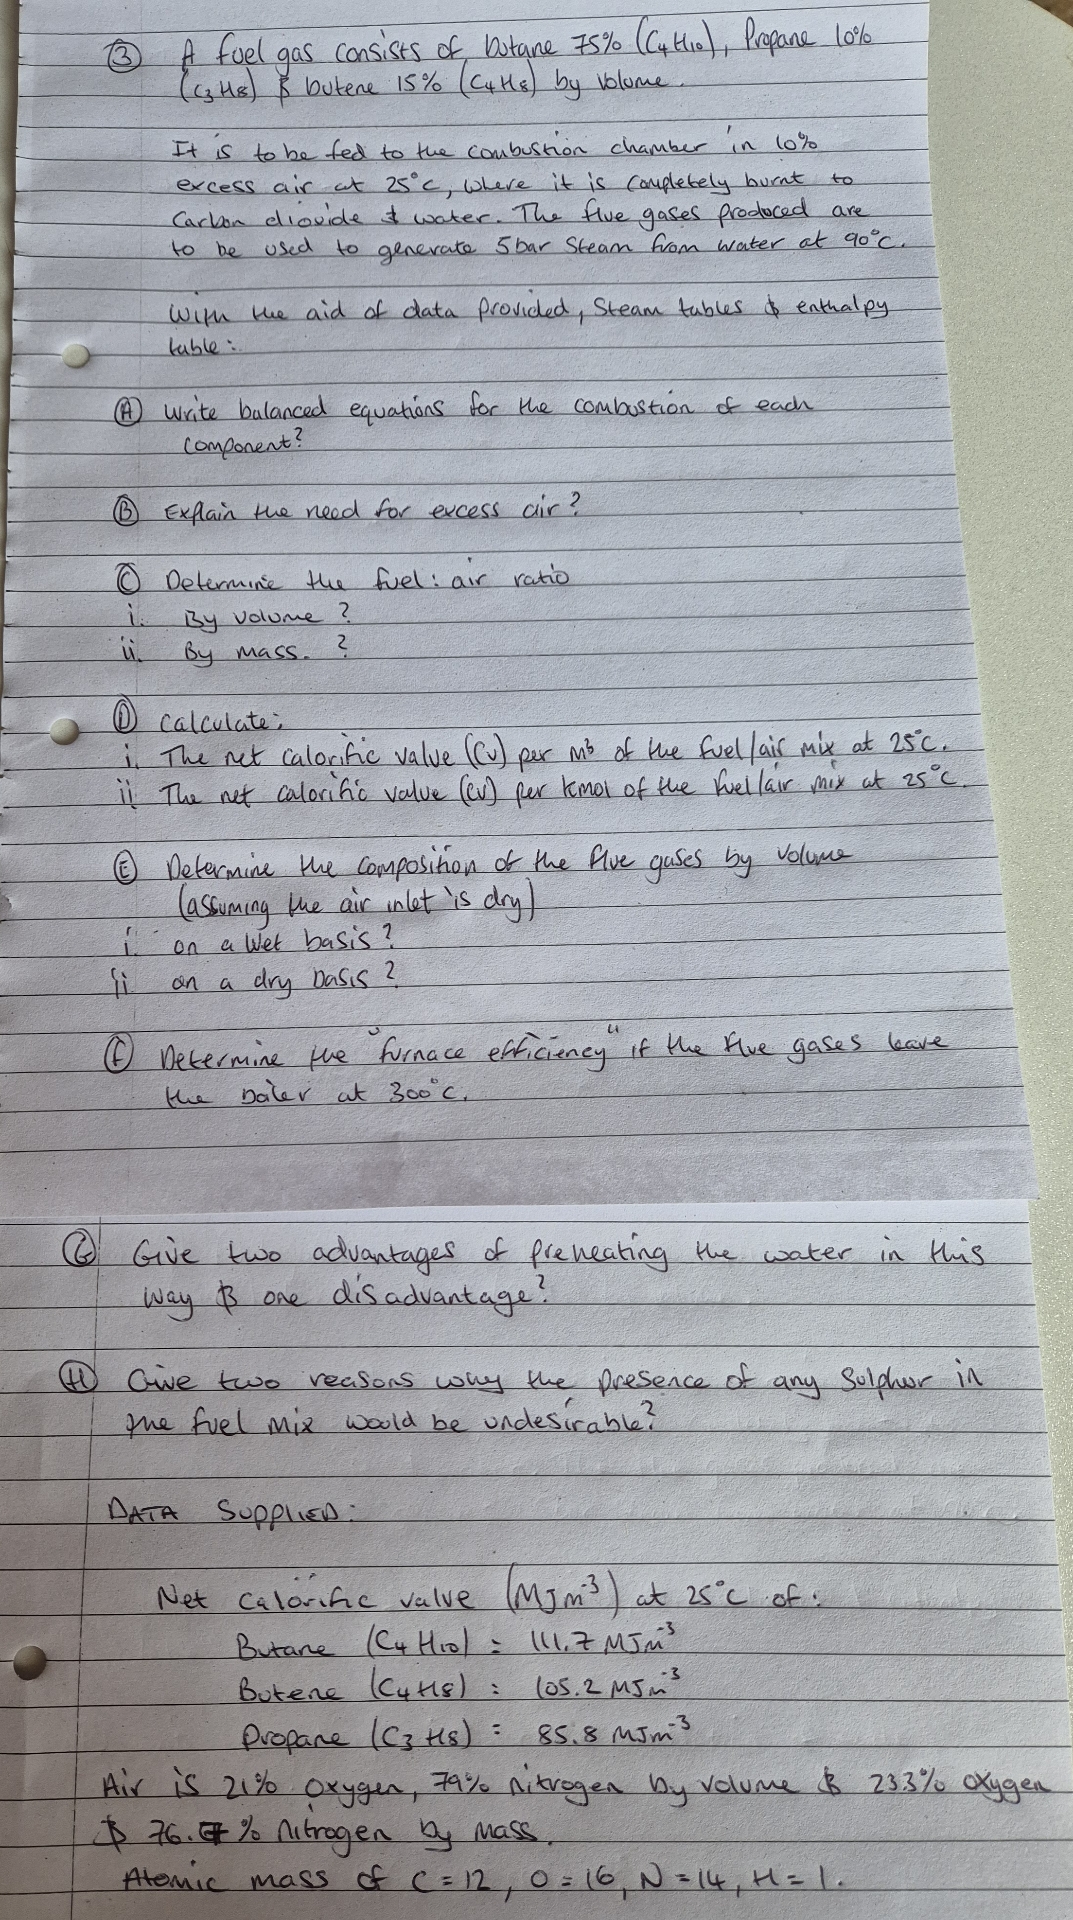 ③ A fuel gas consists of butane 75% (C4H10), Propane 10%
(C3H8) & butene 15% (C4H8) by volume.
It is to be fed to the combustion chamber in 10%
excess air at 25°C, where it is completely burnt to
Carbon dioxide & water. The flue gases produced are
to be used to generate 5bar Steam from water at 90°C.
With the aid of data provided, Steam tables & enthalpy
table:
Ⓐ Write balanced equations for the combustion of each
component?
Ⓑ Explain the need for excess air?
Ⓒ Determine the fuel : air ratio
i. By volume ?
ii. By mass. ?
Ⓓ Calculate:
i. The net calorific value (CV) per m³ of the fuel/air mix at 25°C.
ii. The net calorific value (CV) per kmol of the fuel/air mix at 25°C.
Ⓔ Determine the composition of the flue gases by volume
(assuming the air inlet is dry)
i. on a wet basis?
ii on a dry basis?
Ⓕ Determine the "furnace efficiency" if the flue gases leave
the boiler at 300°C.
Ⓖ Give two advantages of preheating the water in this
way & one disadvantage?
Ⓗ Give two reasons why the presence of any Sulphur in
the fuel mix would be undesirable?
DATA SUPPLIED:
Net calorific value (MJm⁻³) at 25°C of:
Butane (C4H10) = 111.7 MJm⁻³
Butene (C4H8) = 105.2 MJm⁻³
Propane (C3H8) = 85.8 MJm⁻³
Air is 21% oxygen, 79% nitrogen by volume & 23.3% oxygen
& 76.7% nitrogen by mass.
Atomic mass of C = 12, O = 16, N = 14, H = 1.